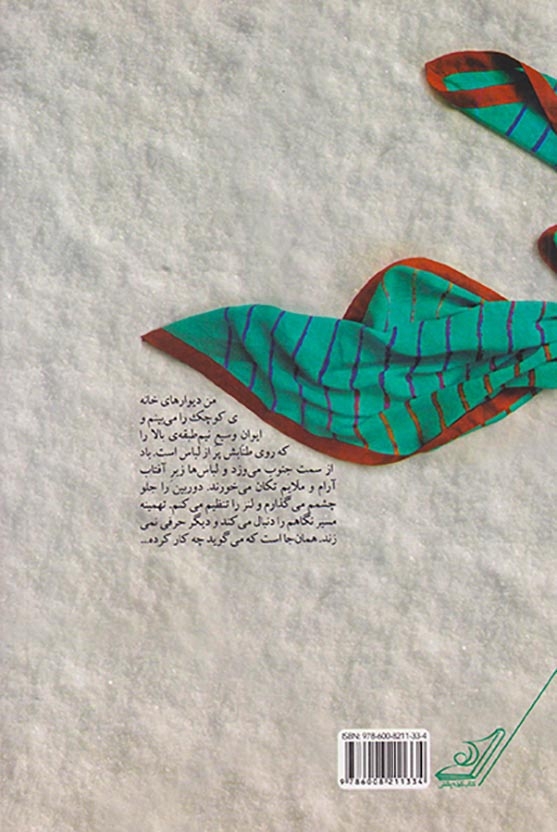 من دیوارهای خانه
ی کوچک را می‌بینم و
ایوان وسیع نیم‌طبقه‌ی بالا را
که روی طنابش پر از لباس است. باد
از سمت جنوب می‌وزد و لباس‌ها زیر آفتاب
آرام و ملایم تکان می‌خورند. دوربین را جلو
چشمم می‌گذارم و لنز را تنظیم می‌کنم. تهمینه
مسیر نگاهم را دنبال می‌کند و دیگر حرفی نمی
زند. همان‌جا است که می‌گوید چه کار کرده...
ISBN: 978-600-8211-33-4
9 786008 211334
کتاب کوله‌پشتی